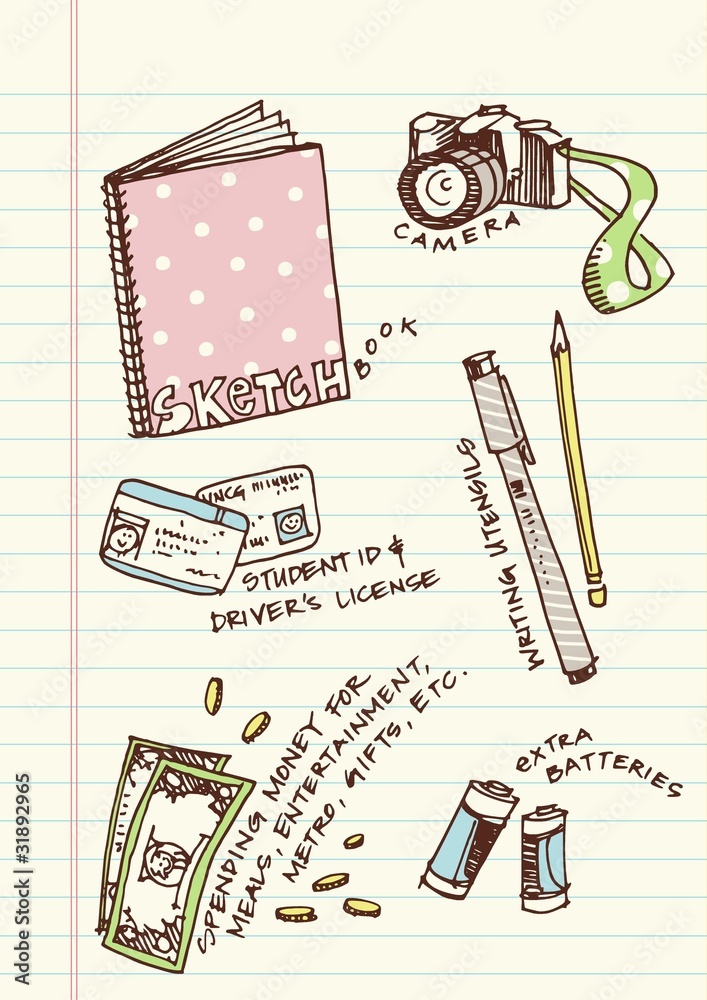 CAMERA
SKETCH BOOK
WRITING UTENSILS
UNCG
STUDENT ID &
DRIVER'S LICENSE
SPENDING MONEY FOR
MEALS, ENTERTAINMENT,
METRO, GIFTS, ETC.
EXTRA
BATTERIES
Adobe Stock | #31892965